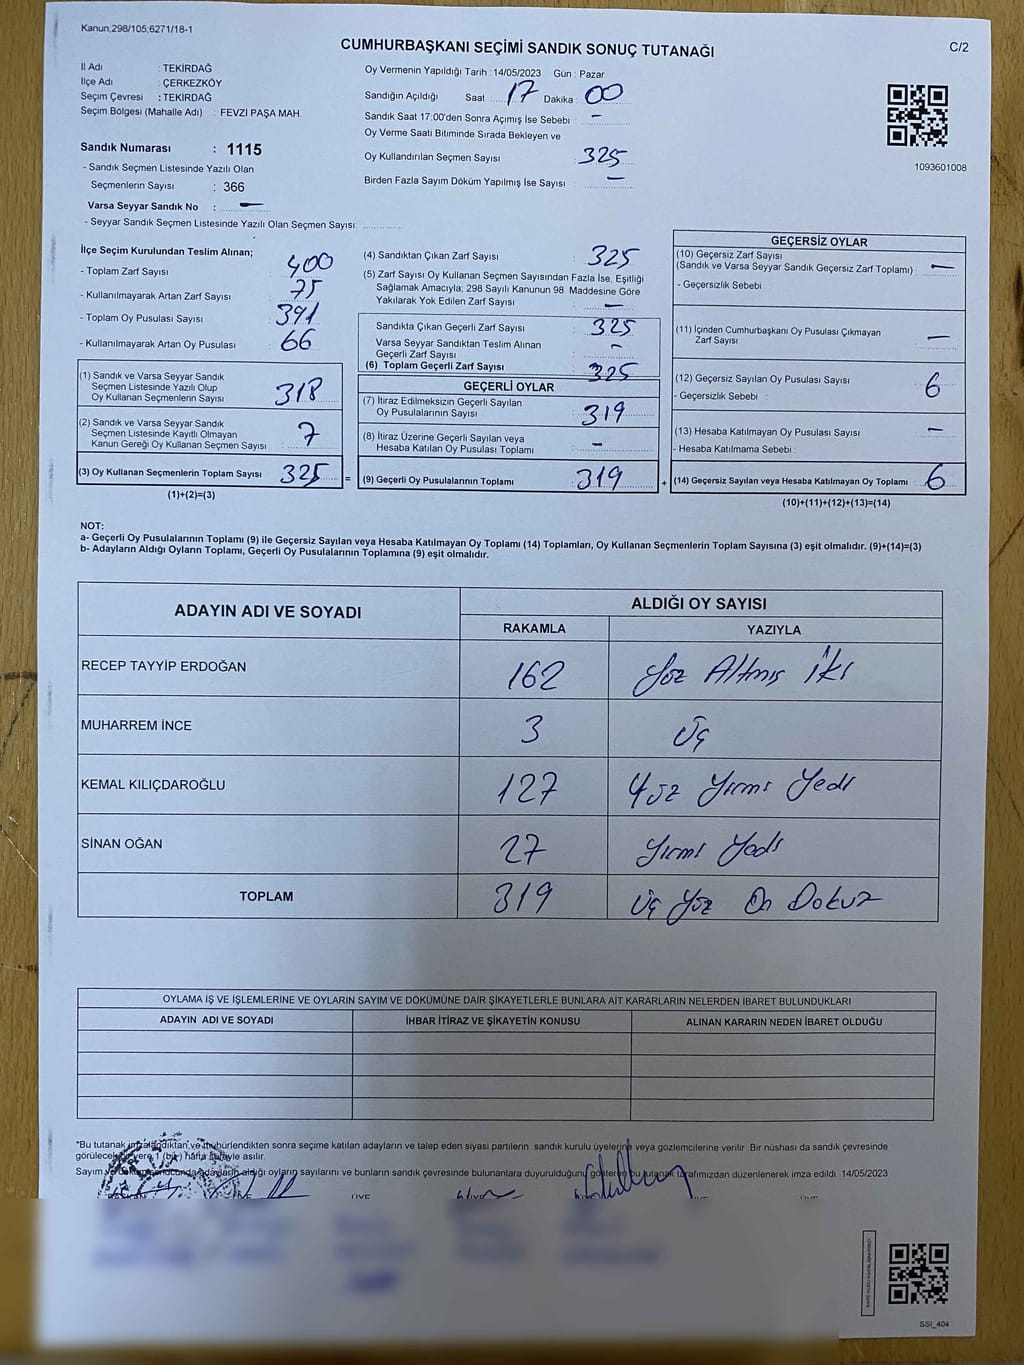 Kanun,298/105,6271/18-1
CUMHURBAŞKANI SEÇİMİ SANDIK SONUÇ TUTANAĞI
C/2
İl Adı : TEKİRDAĞ
İlçe Adı : ÇERKEZKÖY
Seçim Çevresi : TEKİRDAĞ
Seçim Bölgesi (Mahalle Adı) : FEVZİ PAŞA MAH.
Sandık Numarası : 1115
- Sandık Seçmen Listesinde Yazılı Olan
Seçmenlerin Sayısı : 366
Varsa Seyyar Sandık No : —
- Seyyar Sandık Seçmen Listesinde Yazılı Olan Seçmen Sayısı:
Oy Vermenin Yapıldığı Tarih : 14/05/2023 Gün : Pazar
Sandığın Açıldığı Saat 17 Dakika 00
Sandık Saat 17:00'den Sonra Açımış İse Sebebi : —
Oy Verme Saati Bitiminde Sırada Bekleyen ve
Oy Kullandırılan Seçmen Sayısı 325
Birden Fazla Sayım Döküm Yapılmış İse Sayısı : —
1093601008
İlçe Seçim Kurulundan Teslim Alınan;
- Toplam Zarf Sayısı : 400
- Kullanılmayarak Artan Zarf Sayısı : 75
- Toplam Oy Pusulası Sayısı : 391
- Kullanılmayarak Artan Oy Pusulası : 66
(1) Sandık ve Varsa Seyyar Sandık
Seçmen Listesinde Yazılı Olup
Oy Kullanan Seçmenlerin Sayısı : 318
(2) Sandık ve Varsa Seyyar Sandık
Seçmen Listesinde Kayıtlı Olmayan
Kanun Gereği Oy Kullanan Seçmen Sayısı : 7
(3) Oy Kullanan Seçmenlerin Toplam Sayısı : 325 =
(1)+(2)=(3)
(4) Sandıktan Çıkan Zarf Sayısı : 325
(5) Zarf Sayısı Oy Kullanan Seçmen Sayısından Fazla İse, Eşitliği
Sağlamak Amacıyla; 298 Sayılı Kanunun 98. Maddesine Göre
Yakılarak Yok Edilen Zarf Sayısı : —
Sandıkta Çıkan Geçerli Zarf Sayısı : 325
Varsa Seyyar Sandıktan Teslim Alınan
Geçerli Zarf Sayısı : -
(6) Toplam Geçerli Zarf Sayısı : 325
GEÇERLİ OYLAR
(7) İtiraz Edilmeksizin Geçerli Sayılan
Oy Pusulalarının Sayısı : 319
(8) İtiraz Üzerine Geçerli Sayılan veya
Hesaba Katılan Oy Pusulası Toplamı : -
(9) Geçerli Oy Pusulalarının Toplamı : 319 +
GEÇERSİZ OYLAR
(10) Geçersiz Zarf Sayısı
(Sandık ve Varsa Seyyar Sandık Geçersiz Zarf Toplamı) : —
- Geçersizlik Sebebi :
(11) İçinden Cumhurbaşkanı Oy Pusulası Çıkmayan
Zarf Sayısı : —
(12) Geçersiz Sayılan Oy Pusulası Sayısı : 6
- Geçersizlik Sebebi :
(13) Hesaba Katılmayan Oy Pusulası Sayısı : —
- Hesaba Katılmama Sebebi :
(14) Geçersiz Sayılan veya Hesaba Katılmayan Oy Toplamı : 6
(10)+(11)+(12)+(13)=(14)
NOT:
a- Geçerli Oy Pusulalarının Toplamı (9) ile Geçersiz Sayılan veya Hesaba Katılmayan Oy Toplamı (14) Toplamları, Oy Kullanan Seçmenlerin Toplam Sayısına (3) eşit olmalıdır. (9)+(14)=(3)
b- Adayların Aldığı Oyların Toplamı, Geçerli Oy Pusulalarının Toplamına (9) eşit olmalıdır.
ADAYIN ADI VE SOYADI
ALDIĞI OY SAYISI
RAKAMLA YAZIYLA
RECEP TAYYİP ERDOĞAN 162 Yüz Altmış İki
MUHARREM İNCE 3 Üç
KEMAL KILIÇDAROĞLU 127 Yüz Yirmi Yedi
SİNAN OĞAN 27 Yirmi Yedi
TOPLAM 319 Üç Yüz On Dokuz
OYLAMA İŞ VE İŞLEMLERİNE VE OYLARIN SAYIM VE DÖKÜMÜNE DAİR ŞİKAYETLERLE BUNLARA AİT KARARLARIN NELERDEN İBARET BULUNDUKLARI
ADAYIN ADI VE SOYADI İHBAR İTİRAZ VE ŞİKAYETİN KONUSU ALINAN KARARIN NEDEN İBARET OLDUĞU
*Bu tutanak imzalandıktan ve mühürlendikten sonra seçime katılan adayların ve talep eden siyasi partilerin sandık kurulu üyelerine veya gözlemcilerine verilir. Bir nüshası da sandık çevresinde
görülecek bir yere 1 (bir) hafta süreyle asılır.
Sayım ve döküm sonucunda adayların aldığı oyların sayılarını ve bunların sandık çevresinde bulunanlara duyurulduğunu gösteren bu tutanak tarafımızdan düzenlenerek imza edildi. 14/05/2023
SSI_404